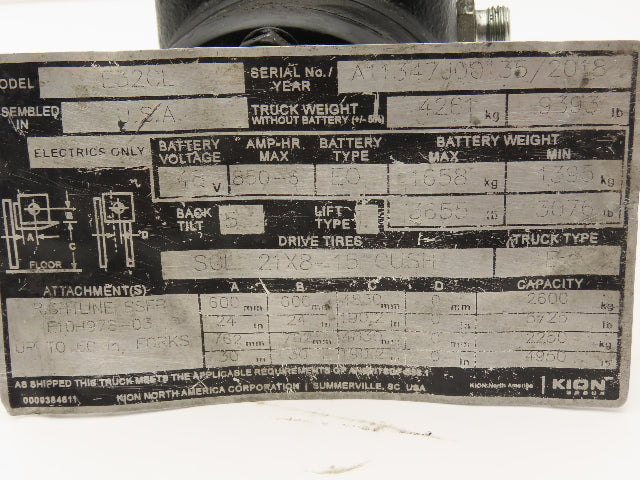 MODEL E32CL SERIAL No./ YEAR /2018
ASSEMBLED IN USA TRUCK WEIGHT WITHOUT BATTERY (+/- 5%) 4261 kg 9393 lb
ELECTRICS ONLY BATTERY VOLTAGE AMP-HR MAX BATTERY TYPE BATTERY WEIGHT MAX MIN
48 V EO 1658 kg 1395 kg
BACK TILT 5 LIFT TYPE 3655 lb 3075 lb
DRIVE TIRES TRUCK TYPE
21X8 CUSH E
A B C D CAPACITY
ATTACHMENT(S) 600 mm 600 mm 4830 mm 0 mm 2600
24 in 24 in in 0 in
UP TO 60 in. FORKS 762 mm 762 mm mm 0 mm 2250
30 in 30 in in 0 in 4950
A B C D
FLOOR
AS SHIPPED THIS TRUCK MEETS THE APPLICABLE REQUIREMENTS OF
0009384611 KION NORTH AMERICA CORPORATION | SUMMERVILLE, SC USA KION North America KION GROUP